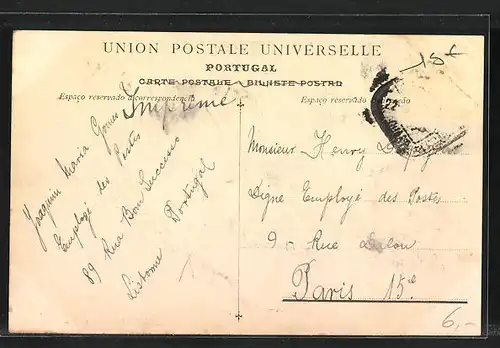 UNION POSTALE UNIVERSELLE
PORTUGAL
CARTE POSTALE — BILHETE POSTAL
Espaço reservado á correspondencia
Espaço reservado
Imprimé
Joaquim Maria Gomes
Employé des Postes
89 Rua Bom Successo
Lisbonne Portugal
Monsieur Henry
Digne Employé des Postes
9 - Rue
Paris 15e
15f
6,-